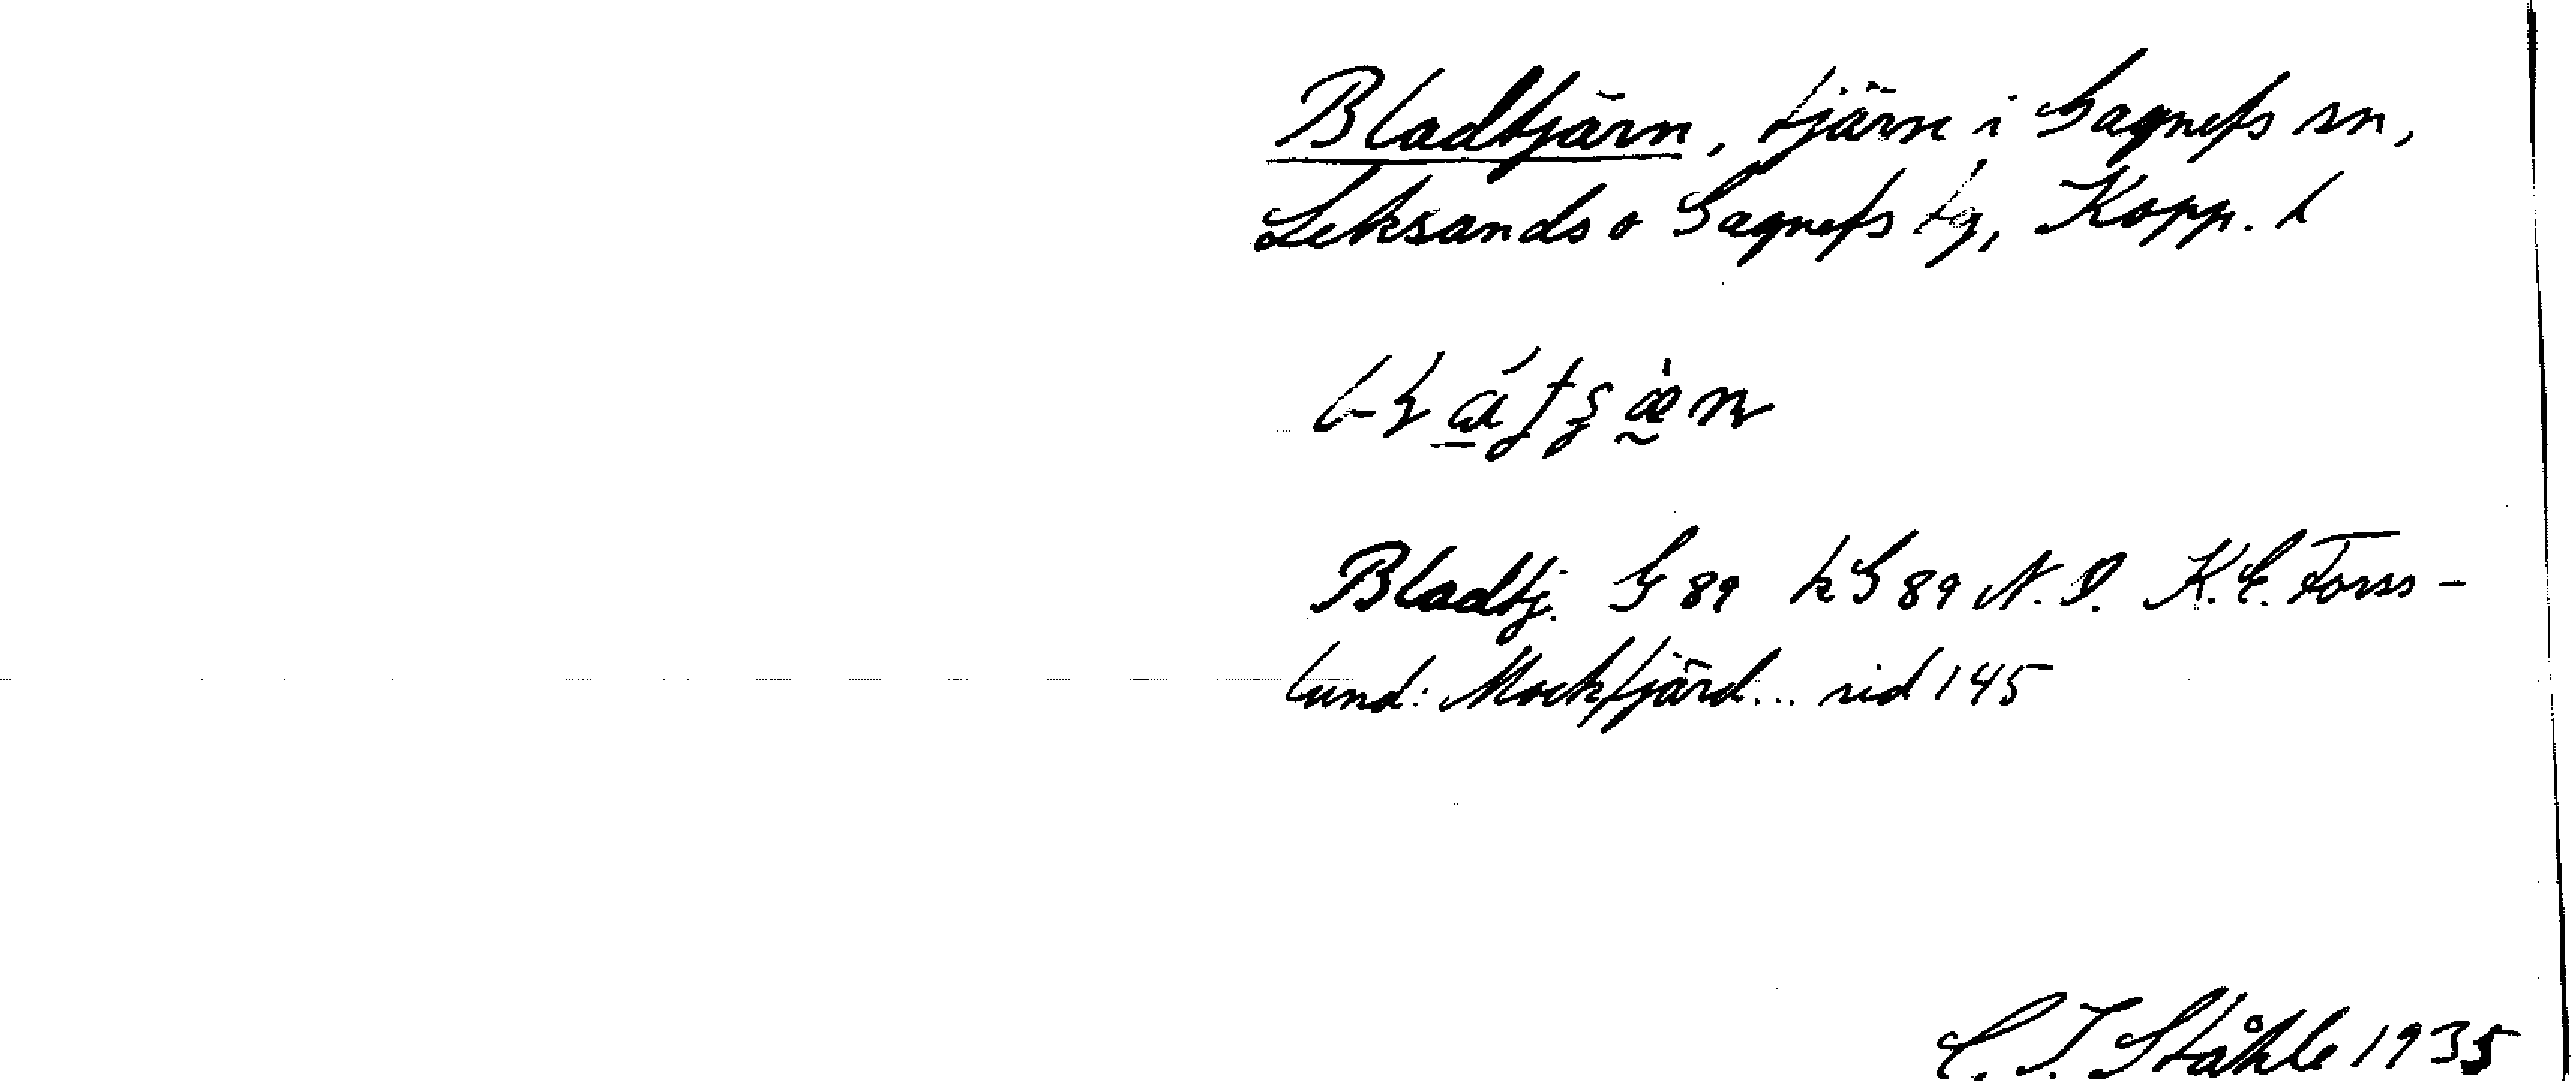 Bladtjärn, tjärn i Gagnefs sn,
Leksands o Gagnefs tg, Kopp. l
Bladtj. G 89 k G 89 N.O. K.E. Forss-
lund: Mockfjärd... sid 145
C. I. Ståhle 1935